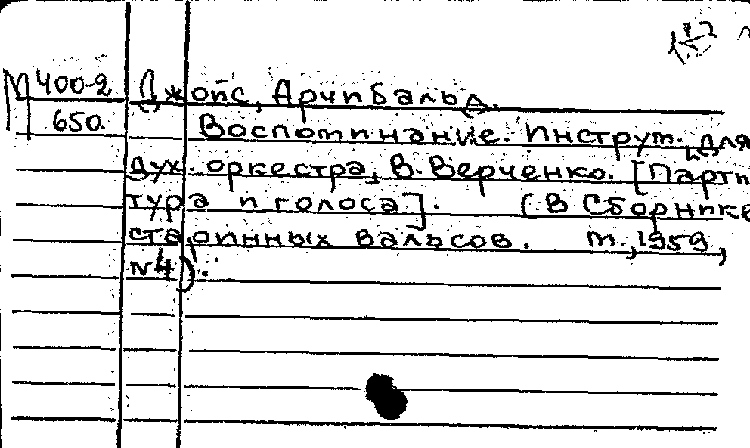 М 400-2 Джойс, Арчибальд.
650. Воспоминание. Инструм. для
дух. оркестра, В. Верченко. [Парти-
тура и голоса]. (В Сборнике
старинных вальсов. М., 1959,
№4).